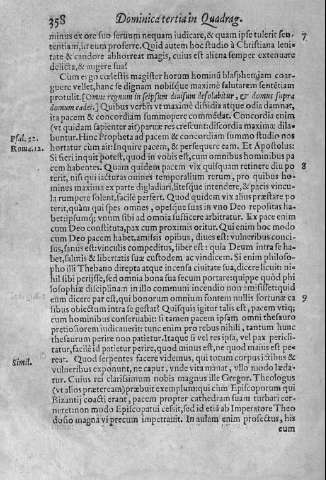 358 Dominica tertia in Quadrag.
minus ex ore suo seruum nequam iudicare, & quam ipse tulerit sen- 7
tentiam, in eum proferre. Quid autem hoc studio à Christiana leni-
tate & candore abhorreat magis, cuius est aliena semper extenuare
delicta, & augere sua?
Cum ergo cælestis magister horum hominũ blasphemiam coar-
guere vellet, hanc se dignam nobisque maximè salutarem sententiam
protulit. [Omne regnum in seipsum diuisum desolabitur, & domus supra
domum cadet.] Quibus verbis vt maximè dissidia atque odia damnat,
ita pacem & concordiam summopere commẽdat. Concordia enim
(vt quidam sapienter ait) paruæ res crescunt: discordia maximæ dila-
Psal. 32. buntur. Hinc Propheta ad pacem & concordiam summo studio nos
Rom. 12. hortatur cùm ait: Inquire pacem, & persequere eam. Et Apostolus:
Si fieri inquit potest, quod in vobis est, cum omnibus hominibus pa
cem habentes. Quam quidem pacem vix quisquam retinere diu po 8
terit, nisi qui iacturas omnes temporalium rerum, pro quibus ho-
mines maxima ex parte digladiari, litesque intendere, & pacis vincu-
la rumpere solent, facilè perfert. Quod quidem vix alius præstare po
terit, quàm qui spes omnes, opesque suas in vno Deo repositas ha-
bet: ipsumque vnum sibi ad omnia sufficere arbitratur. Ex pace enim
cum Deo constituta, pax cum proximis oritur. Qui enim hoc modo
cum Deo pacem habet, amissis opibus, diues est: vulneribus conci-
sus, sanus est: vinculis compeditus, liber est: quia Deum intra se ha-
bet, salutis & libertatis suæ custodem ac vindicem. Si enim philoso-
pho illi Thebano direpta atque incensa ciuitate sua, dicere licuit ni-
hil sibi perijsse, sed omnia bona sua secum portare: quippe quòd phi
losophiæ disciplinam in illo communi incendio non amisisset: quid
eum dicere par est, qui bonorum omnium fontem nullis fortunæ ca 9
sibus obiectum intra se gestat? Quisquis igitur talis est, pacem vtique
cum hominibus conseruabit: si tamen pacem ipsam omni thesauro
pretiosiorem iudicauerit: tunc enim pro rebus nihili, tantum hunc
thesaurum perire non patietur. Itaque si vel res ipsa, vel pax pericli-
tatur, facilè id patietur perire, quod minus est, ne quod maius est pe-
Simil. reat. Quod serpentes facere videmus, qui totum corpus ictibus &
vulneribus exponunt, ne caput, vnde vita manat, vllo modo læda-
tur. Cuius rei clarissimum nobis magnus ille Gregor. Theologus
(vt alios præteream) præbuit exemplum: qui cùm Episcoporum qui
Bizantij coacti erant, pacem propter cathedram suam turbari cer-
neret: non modo Episcopatui cessit, sed id etiã ab Imperatore Theo
dosio magna vi precum impetrauit. In aulam enim profectus, his
eum